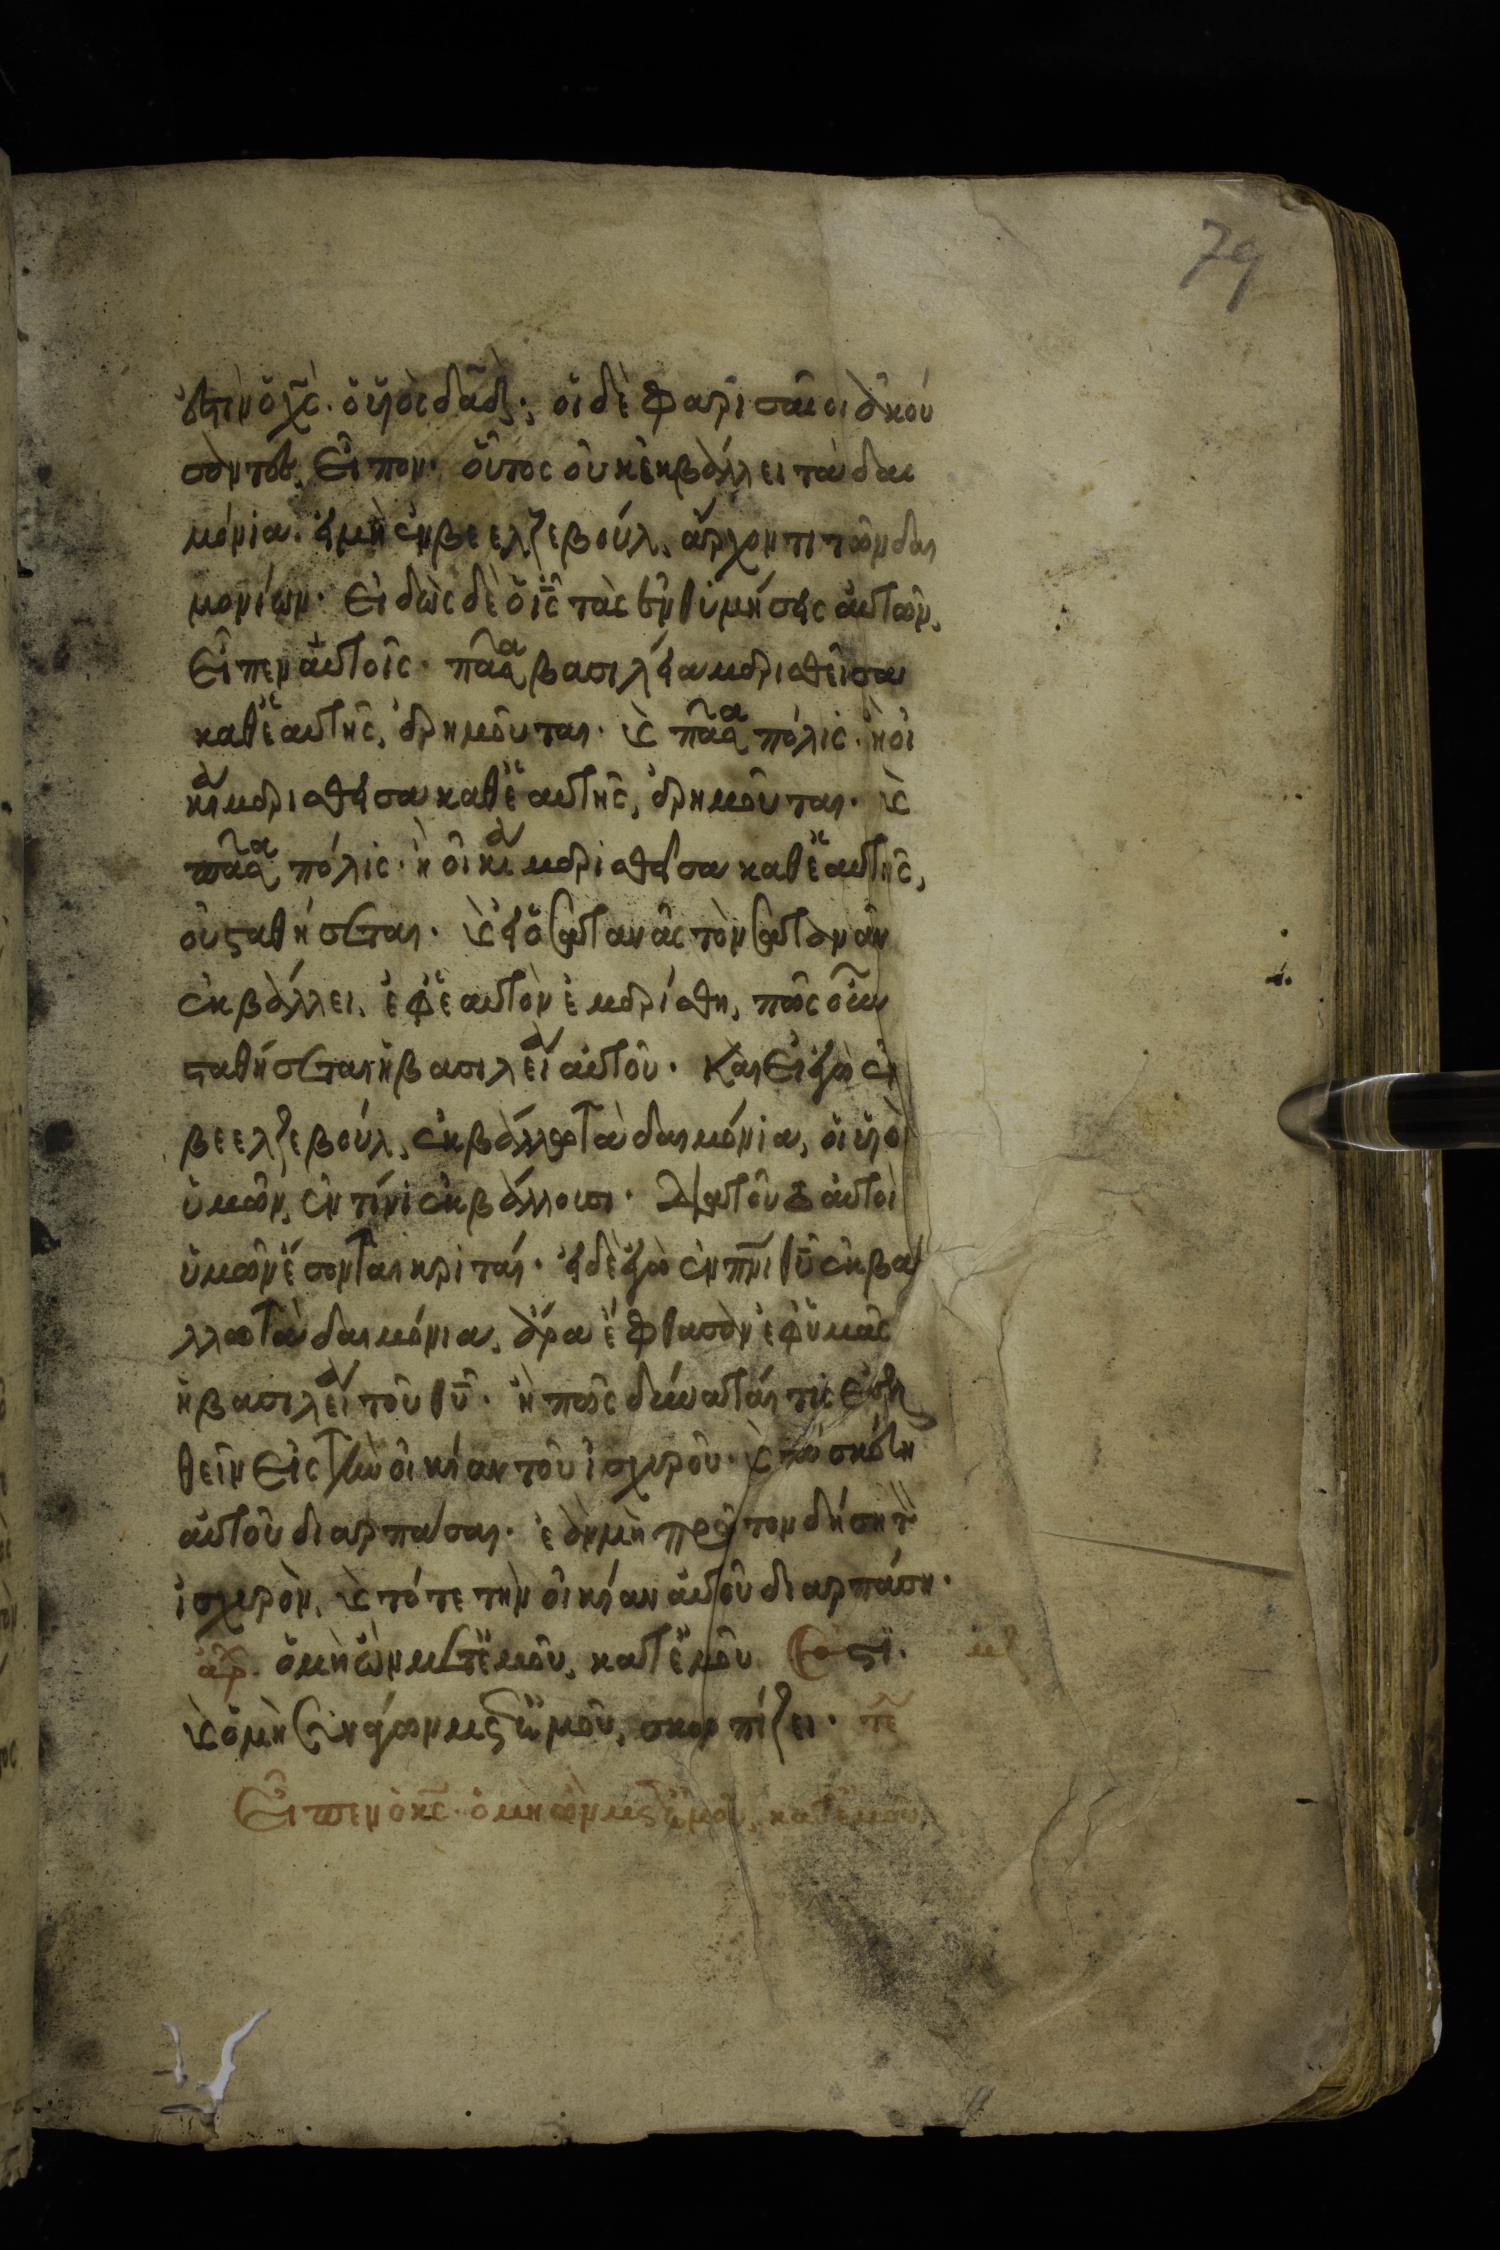 79
ἐστιν ὁ χς̄· ὁ υἱὸς δαδ̄· οἱ δὲ φαρισαῖοι ἀκού
σαντες, εἶπον· οὗτος οὐκ ἐκβάλλει τὰ δαι
μόνια· εἰ μὴ ἐν βεελζεβούλ, ἄρχοντι τῶν δαι
μονίων· εἰδὼς δὲ ὁ ις̄ τὰς ἐνθυμήσεις αὐτῶν,
εἶπεν αὐτοῖς· πᾶσα βασιλεία μερισθεῖσα
καθ' ἑαυτῆς, ἐρημοῦται· καὶ πᾶσα πόλις· ἢ οἰ
κία μερισθεῖσα καθ' ἑαυτῆς, ἐρημοῦται· καὶ
πᾶσα πόλις· ἢ οἰκία μερισθεῖσα καθ' ἑαυτῆς,
οὐ σταθήσεται· καὶ εἰ ὁ σατανᾶς τὸν σατανᾶν
ἐκβάλλει, ἐφ' ἑαυτὸν ἐμερίσθη, πῶς οὖν
σταθήσεται ἡ βασιλεία αὐτοῦ· καὶ εἰ ἐγὼ ἐν
βεελζεβούλ, ἐκβάλλω τὰ δαιμόνια, οἱ υἱοὶ
ὑμῶν, ἐν τίνι ἐκβάλλουσι· διατοῦτο αὐτοὶ
ὑμῶν ἔσονται κριταί· εἰ δὲ ἐγὼ ἐν πνῑ θῡ ἐκβά
λλω τὰ δαιμόνια, ἄρα ἔφθασεν ἐφ' ὑμᾶς
ἡ βασιλεία τοῦ θῡ· ἢ πῶς δύναταί τις εἰσελ
θεῖν εἰς τὴν οἰκίαν τοῦ ἰσχυροῦ· καὶ τὰ σκεύη
αὐτοῦ διαρπάσαι· ἐὰν μὴ πρῶτον δήσῃ τὸν
ἰσχυρόν, καὶ τότε τὴν οἰκίαν αὐτοῦ διαρπάσῃ·
ἀρχ. ὁ μὴ ὢν μετ' ἐμοῦ, κατ' ἐμοῦ ἐστι·
καὶ ὁ μὴ συνάγων μετ' ἐμοῦ, σκορπίζει· τέ
Εἶπεν ὁ κς̄· ὁ μὴ ὢν μετ' ἐμοῦ, κατ' ἐμοῦ